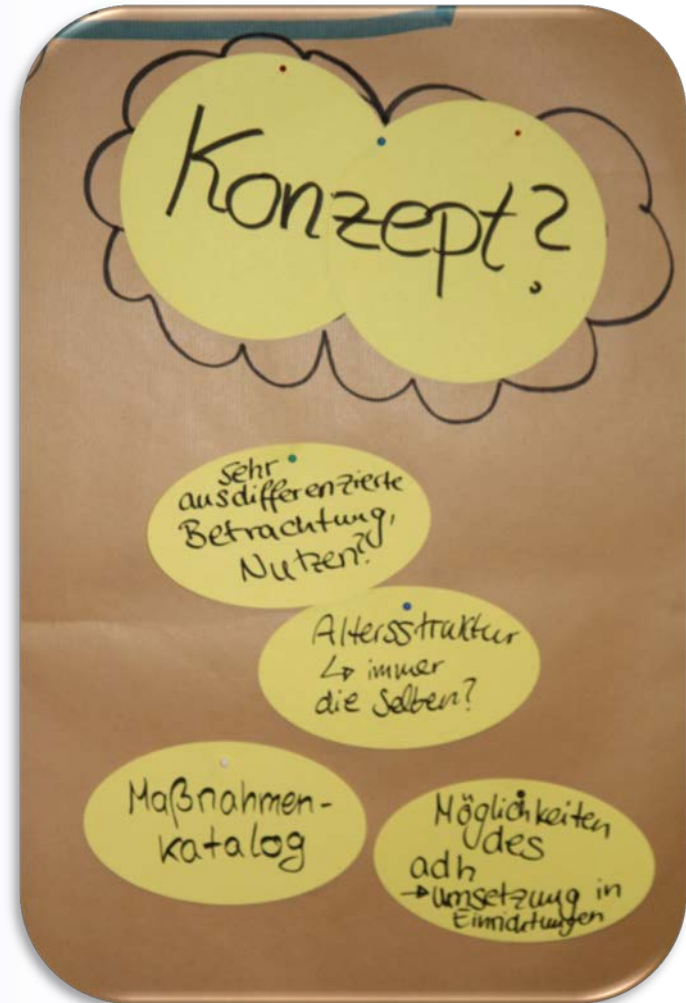 Konzept?
Sehr
ausdifferenzierte
Betrachtung,
Nutzen?
Altersstruktur
↳ immer
die Selben?
Maßnahmen-
katalog
Möglichkeiten
des
adh
→ Umsetzung in
Einrichtungen